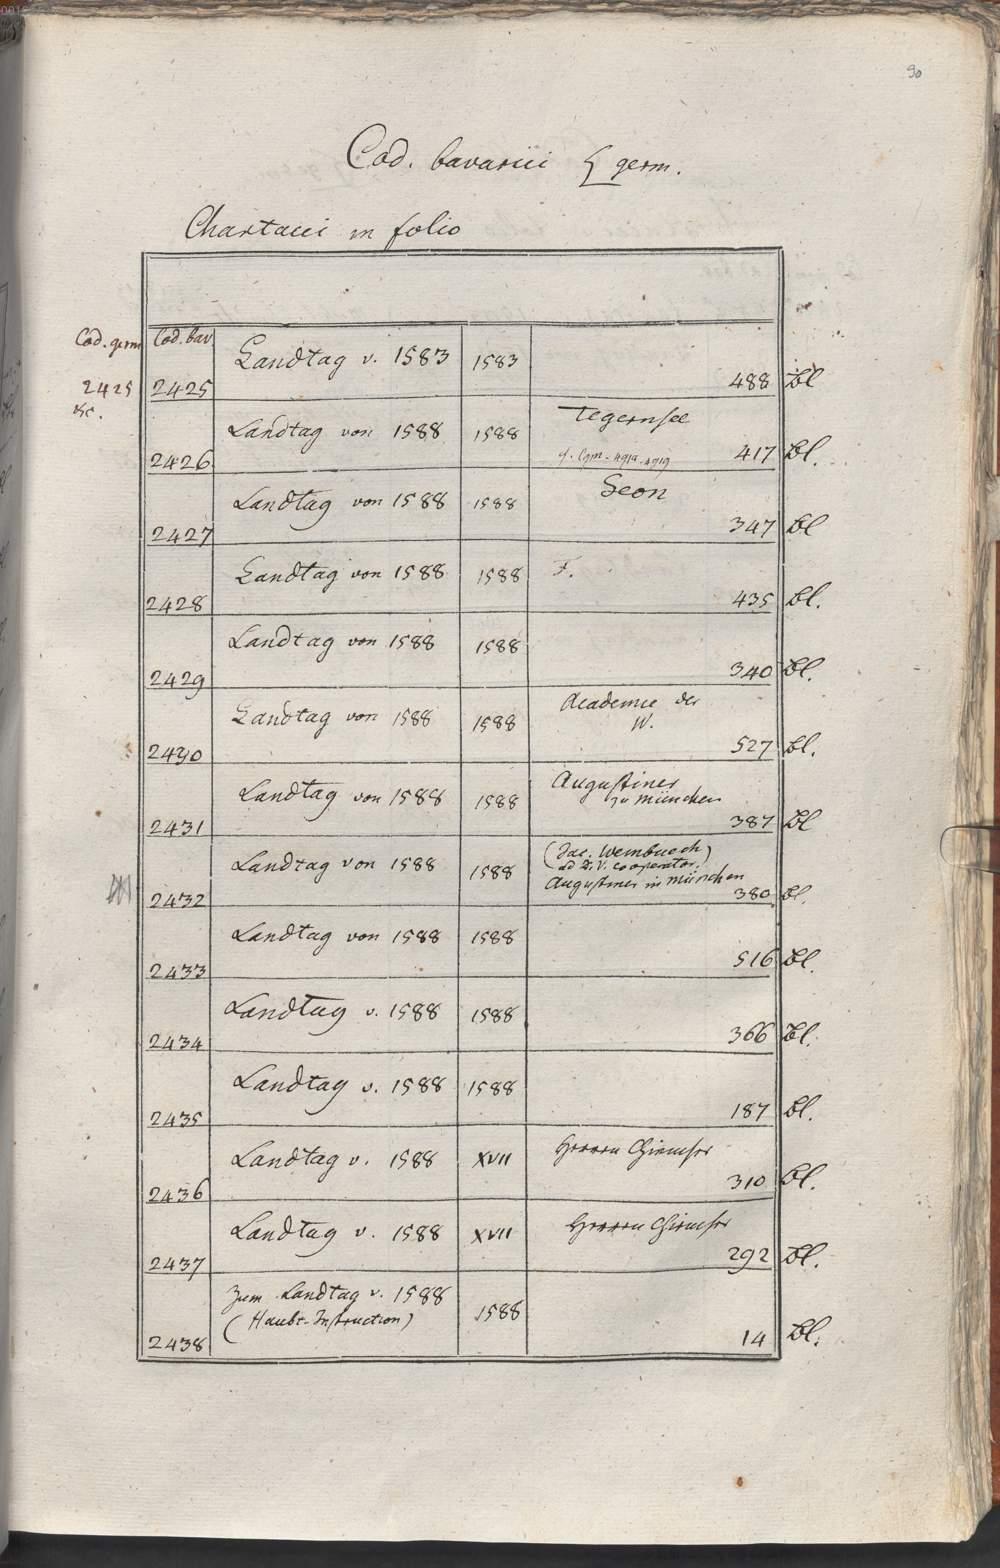 90
Cod. bavarici & germ.
Chartacei in folio
Cod. germ Cod. bav
2425 &c. 2425 Landtag v. 1583 1583 488 Bl
2426 Landtag von 1588 1588 Tegernsee 417 Bl.
Landtag von 1588 1588 Seon
2427 347 Bl
Landtag von 1588 1588 F.
2428 435 Bl.
Landtag von 1588 1588
2429 340 Bl.
Landtag von 1588 1588 Academie der
W.
2430 527 Bl.
Landtag von 1588 1588 Augustiner
zu München
2431 387 Bl
Landtag von 1588 1588 (Jac.
Augustiner in München
2432 380 Bl.
Landtag von 1588 1588
2433 516 Bl.
Landtag v. 1588 1588
2434 366 Bl.
Landtag v. 1588 1588
2435 187 Bl.
Landtag v. 1588 XVII Herren Chiemsee
2436 310 Bl.
Landtag v. 1588 XVII Herren Chiemsee
2437 292 Bl.
Zum Landtag v. 1588 1588
(Haubt-Instruction)
2438 14 Bl.